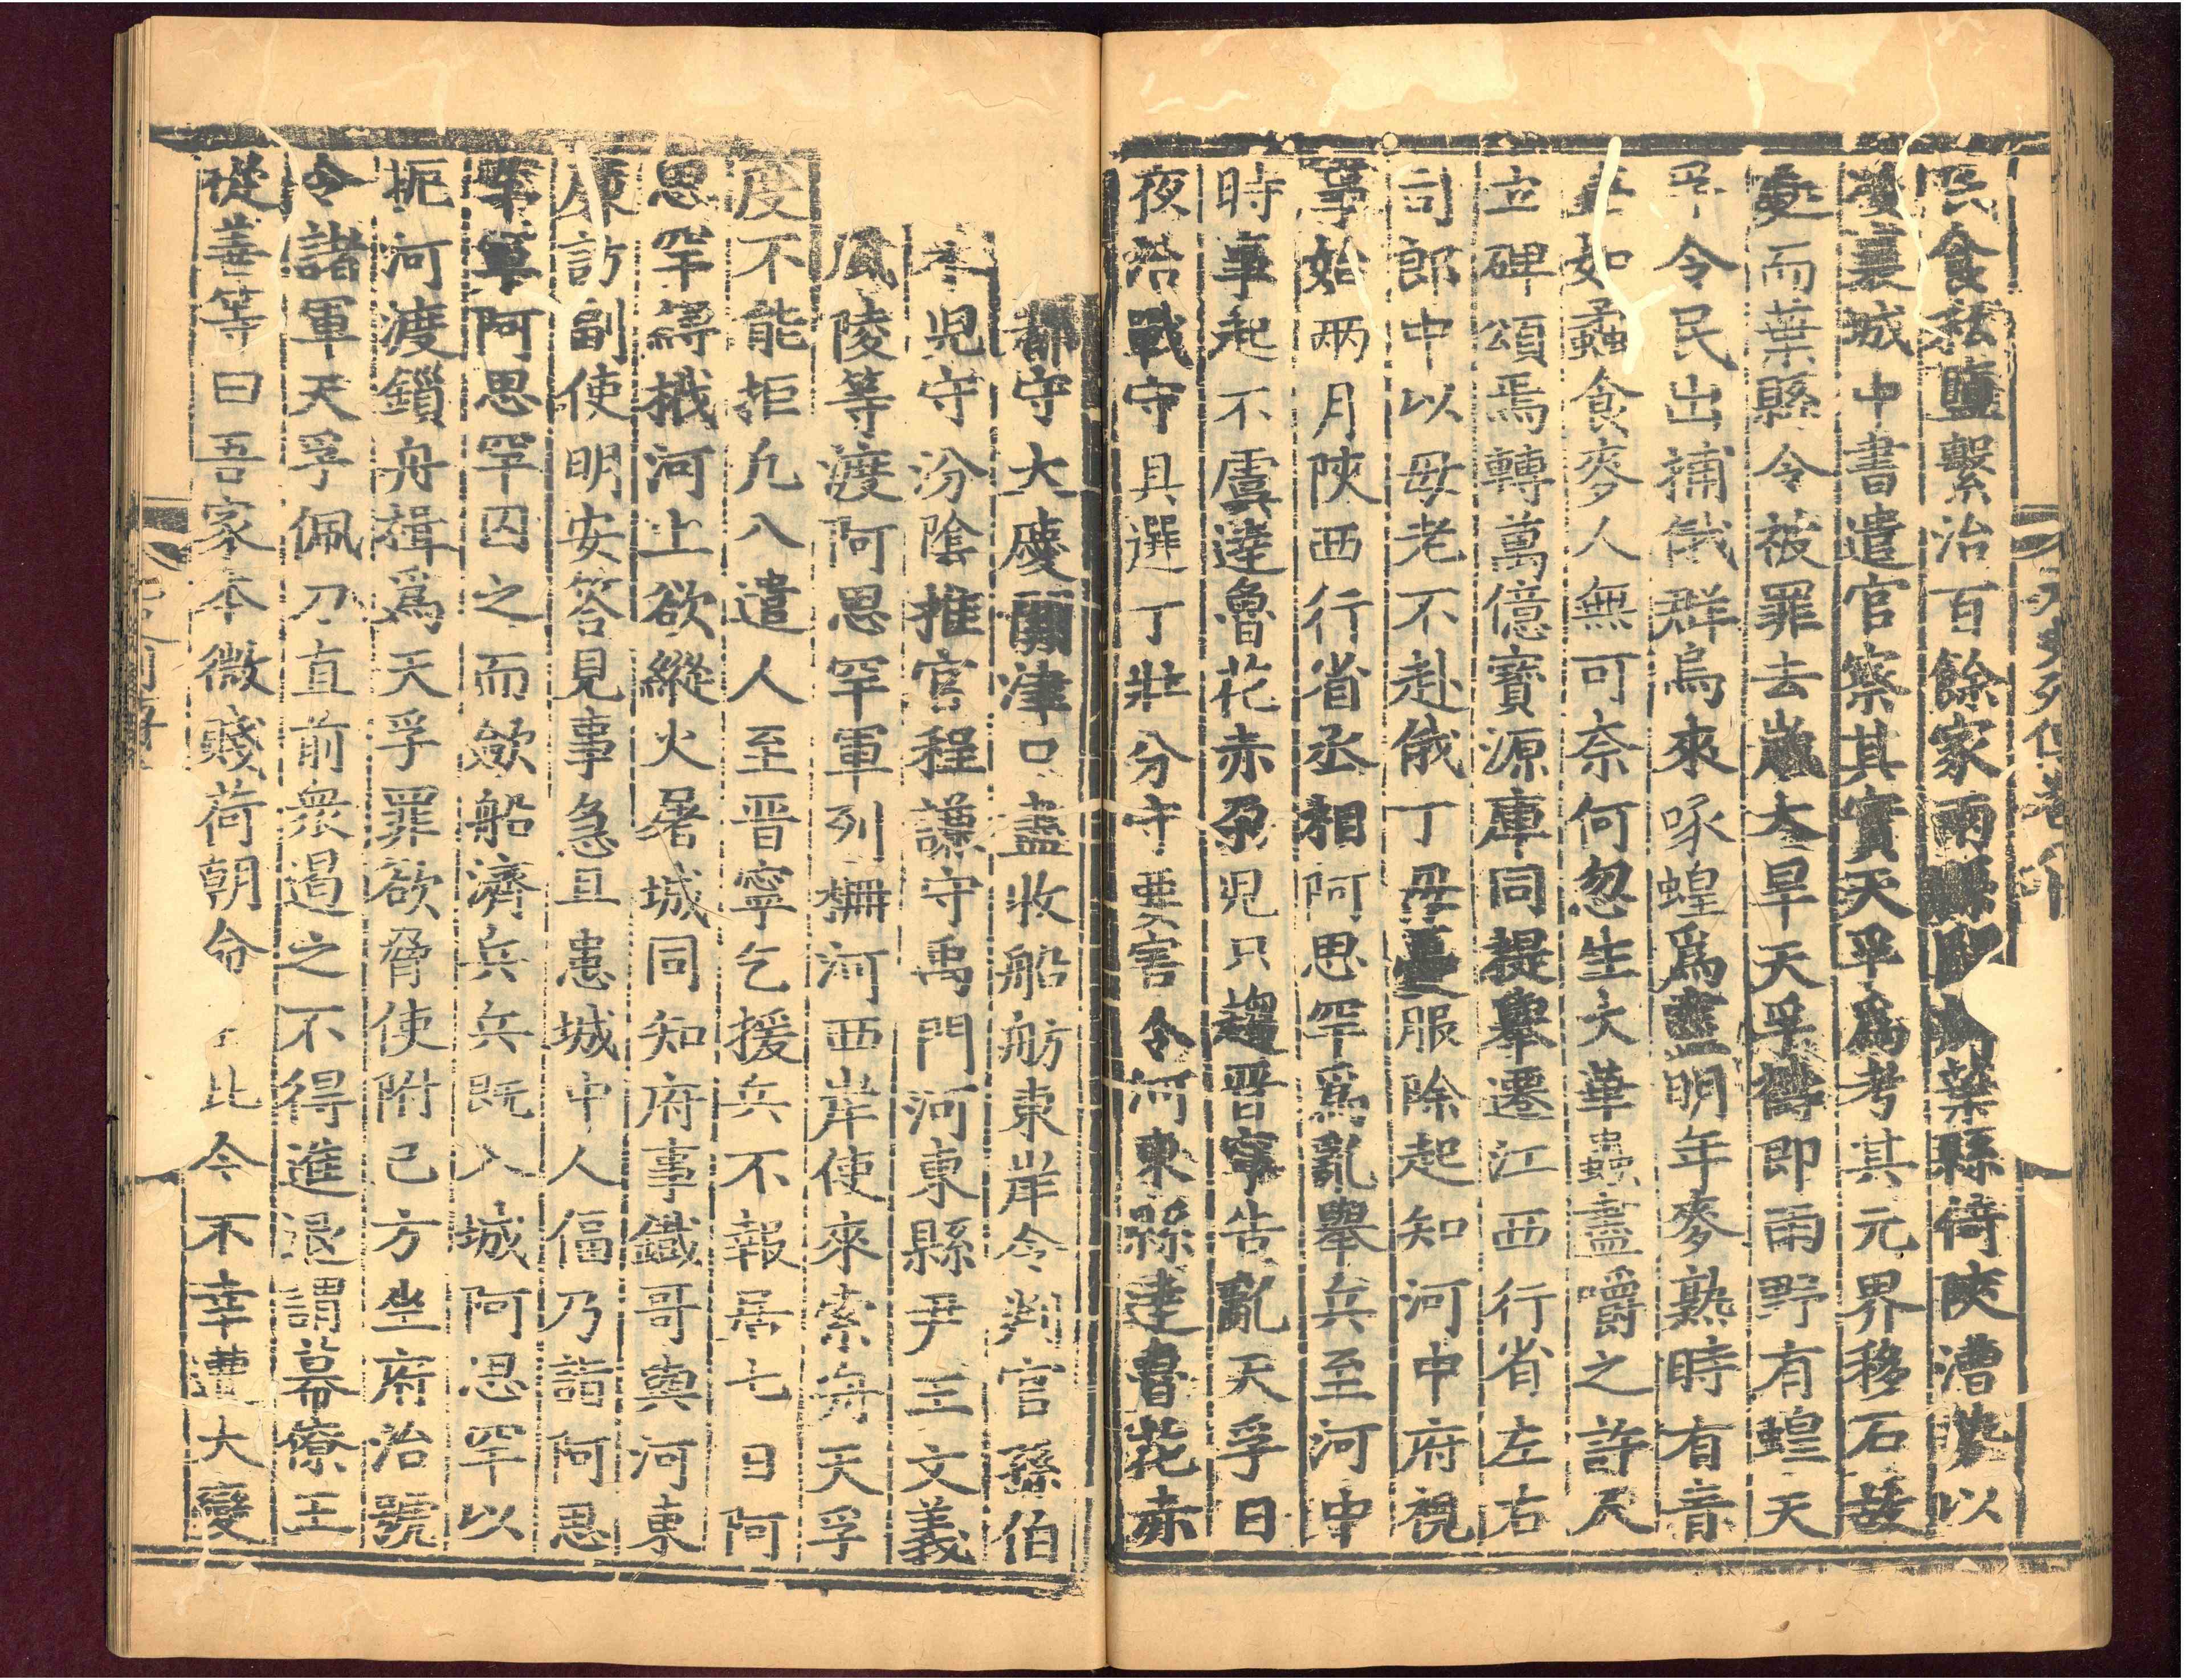 民食私鹽繫治百餘家兩縣葉縣倚陝漕勢以
凌襄城中書遣官察其實天孚爲考其元界移石故
處而葉縣令被罪去歲大旱天孚禱即雨野有蝗天
孚令民出捕俄群烏來啄蝗爲盡明年麥熟時有音
蟲如蟊食麥人無可奈何忽生大華蟲盡嚼之許民
立碑頌焉轉萬億寶源庫同提舉遷江西行省左右
司郎中以母老不赴俄丁母憂服除起知河中府視
事始兩月陝西行省丞相阿思罕爲亂舉兵至河中
時事起不虞達魯花赤朶兒只趨晋寧告亂天孚日
夜治戰守具選丁壯分守要害令河東縣達魯花赤
都守大慶關津口盡收船舫東岸令判官孫伯
守汾陰推官程謙守禹門河東縣尹王文義
風陵等渡阿思罕軍列柵河西岸使來索舟天孚
度不能拒凡八遣人至晋寧乞援兵不報居七日阿
思罕縛栰河上欲縱火屠城同知府事鐵哥與河東
廉訪副使明安答見事急且患城中人偪乃詣阿思
罕軍阿思罕囚之而歛船濟兵兵既入城阿思罕以
扼河渡鎖舟楫爲天孚罪欲脅使附己方坐府治號
令諸軍天孚佩刀直前衆遏之不得進退謂幕僚王
從善等曰吾家本微賤荷朝命此今不幸遭大變